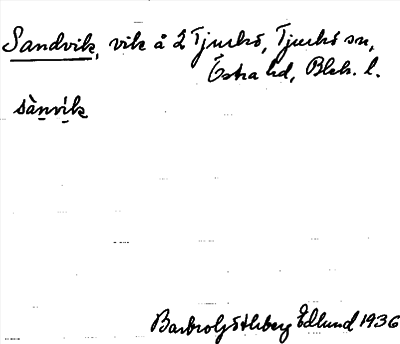 Sandvik, vik å 2 Tjurkö, Tjurkö sn,
Östra hd, Blek. l.
sànvik
Edlund 1936